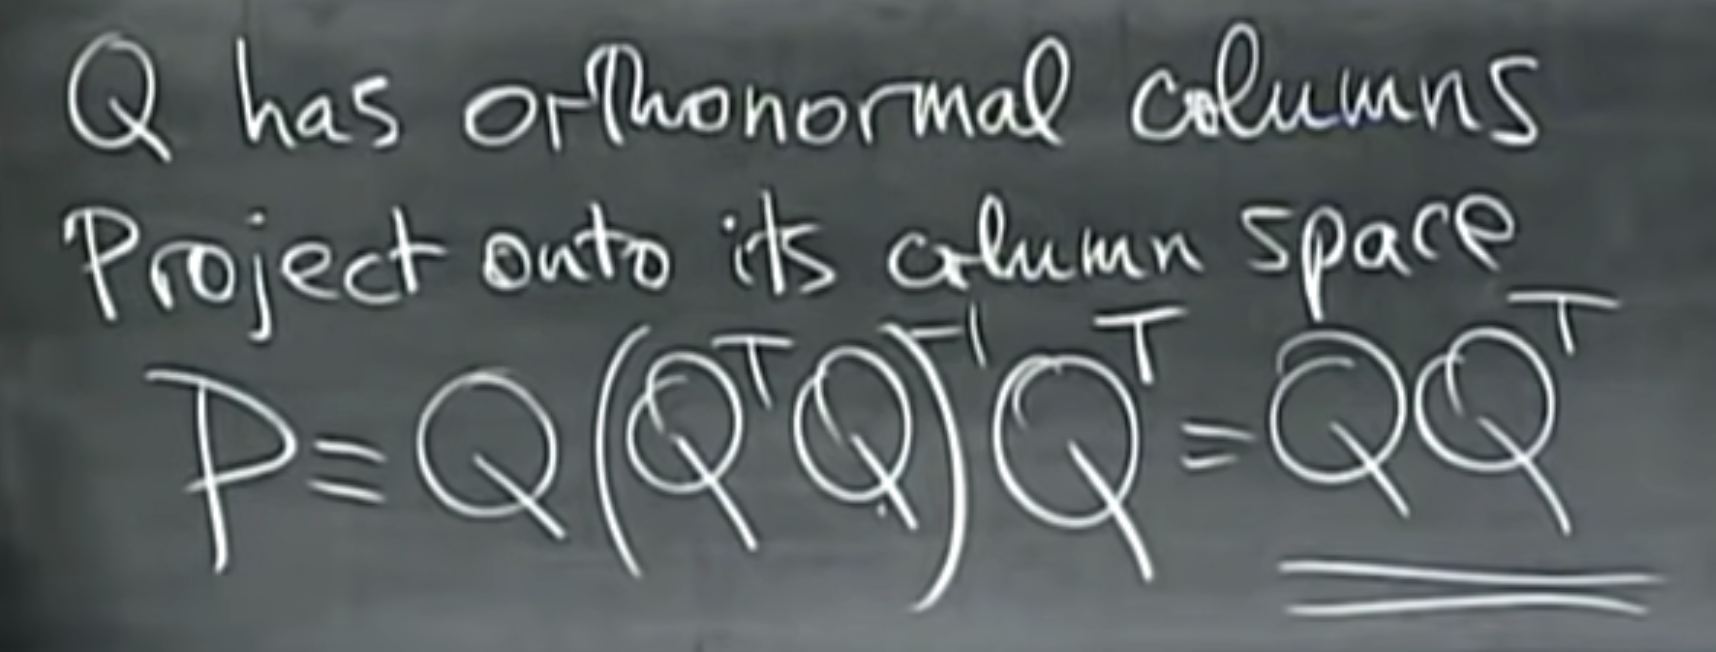 Q has orthonormal columns
Project onto its column space
P = Q(QᵀQ)⁻¹Qᵀ = QQᵀ